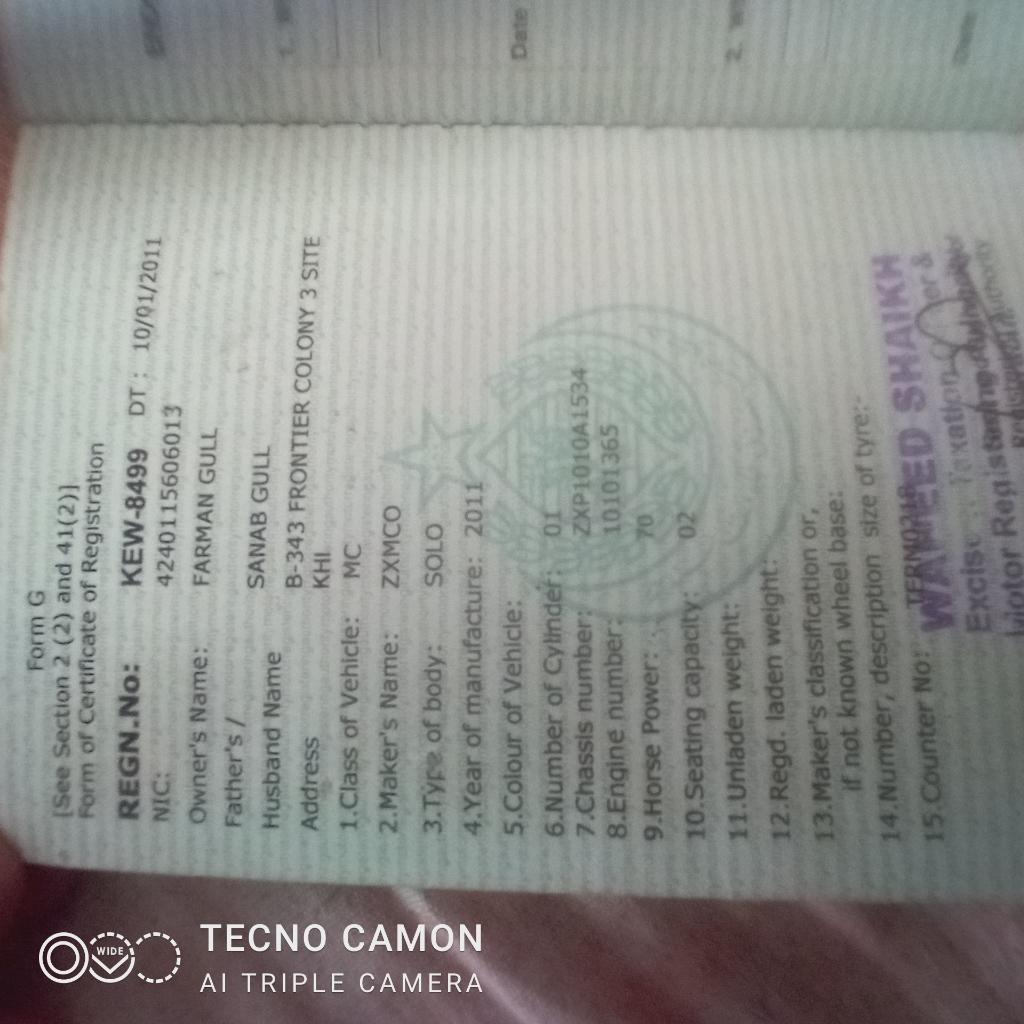 Form G
[See Section 2 (2) and 41(2)]
Form of Certificate of Registration
REGN.No: KEW-8499 DT : 10/01/2011
NIC: 4240115606013
Owner's Name: FARMAN GULL
Father's /
Husband Name SANAB GULL
Address B-343 FRONTIER COLONY 3 SITE
KHI
1.Class of Vehicle: MC
2.Maker's Name: ZXMCO
3.Type of body: SOLO
4.Year of manufacture: 2011
5.Colour of Vehicle:
6.Number of Cylinder: 01
7.Chassis number: ZXP1010A1534
8.Engine number: 10101365
9.Horse Power: 70
10.Seating capacity: 02
11.Unladen weight:
12.Regd. laden weight:
13.Maker's classification or,
if not known wheel base:
14.Number, description size of tyre:-
15.Counter No:
WAHEED SHAIKH
Excise Taxation
Motor Registering Authority
Date
2.
Date
TECNO CAMON
AI TRIPLE CAMERA
WIDE